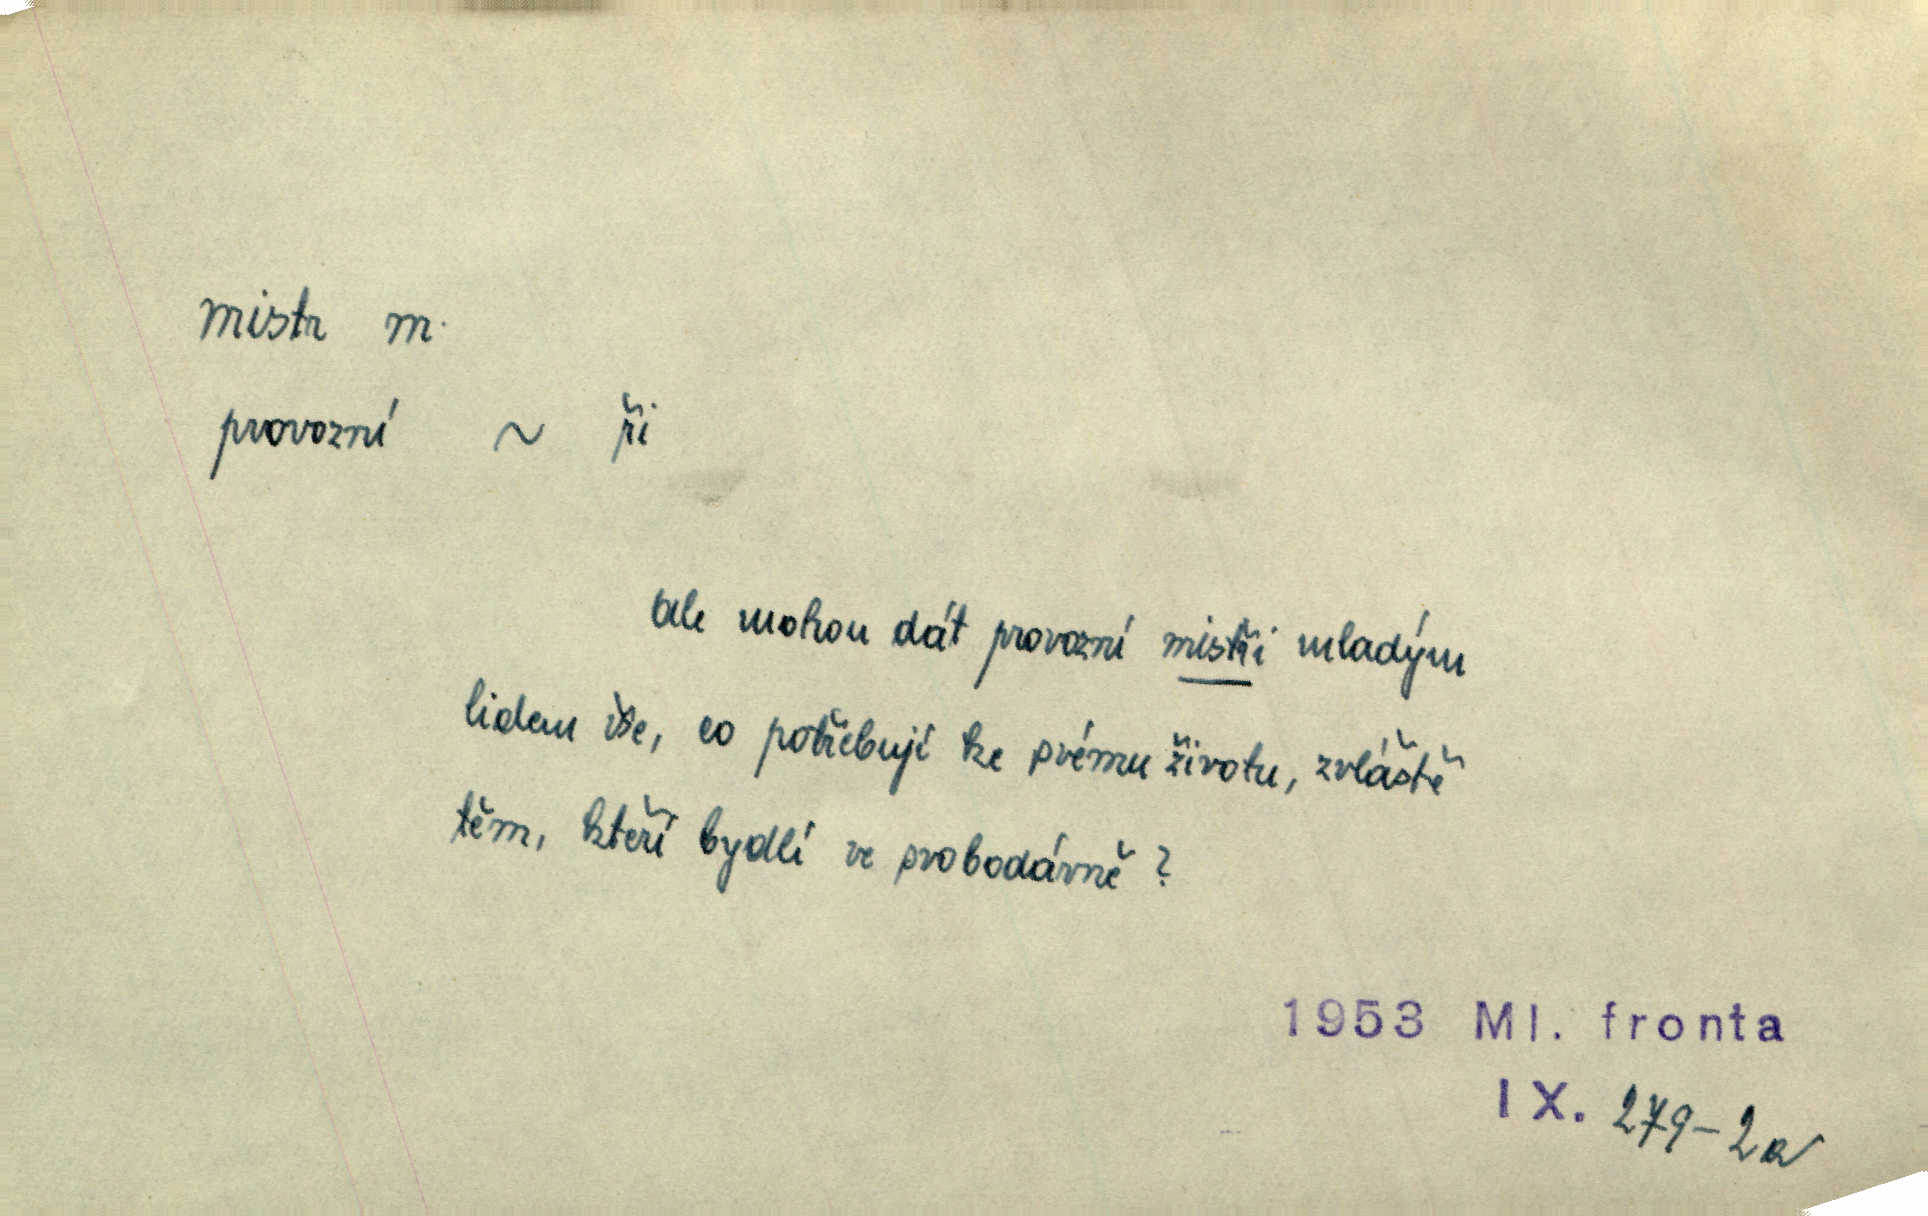 mistr m.
provozní ~ ři
Ale mohou dát provozní mistři mladým
lidem vše, co potřebují ke svému životu, zvláště
těm, kteří bydlí ve svobodárně?
1953 Ml. fronta
IX. 279-2a